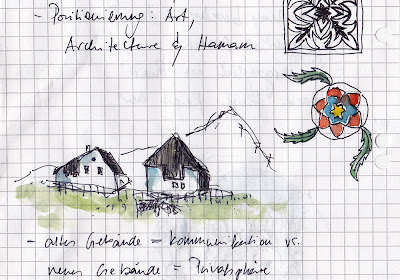 - Positionierung: Art,
Architecture & Hamam
- altes Gebäude = Kommunikation vs.
neues Gebäude = Privatsphäre